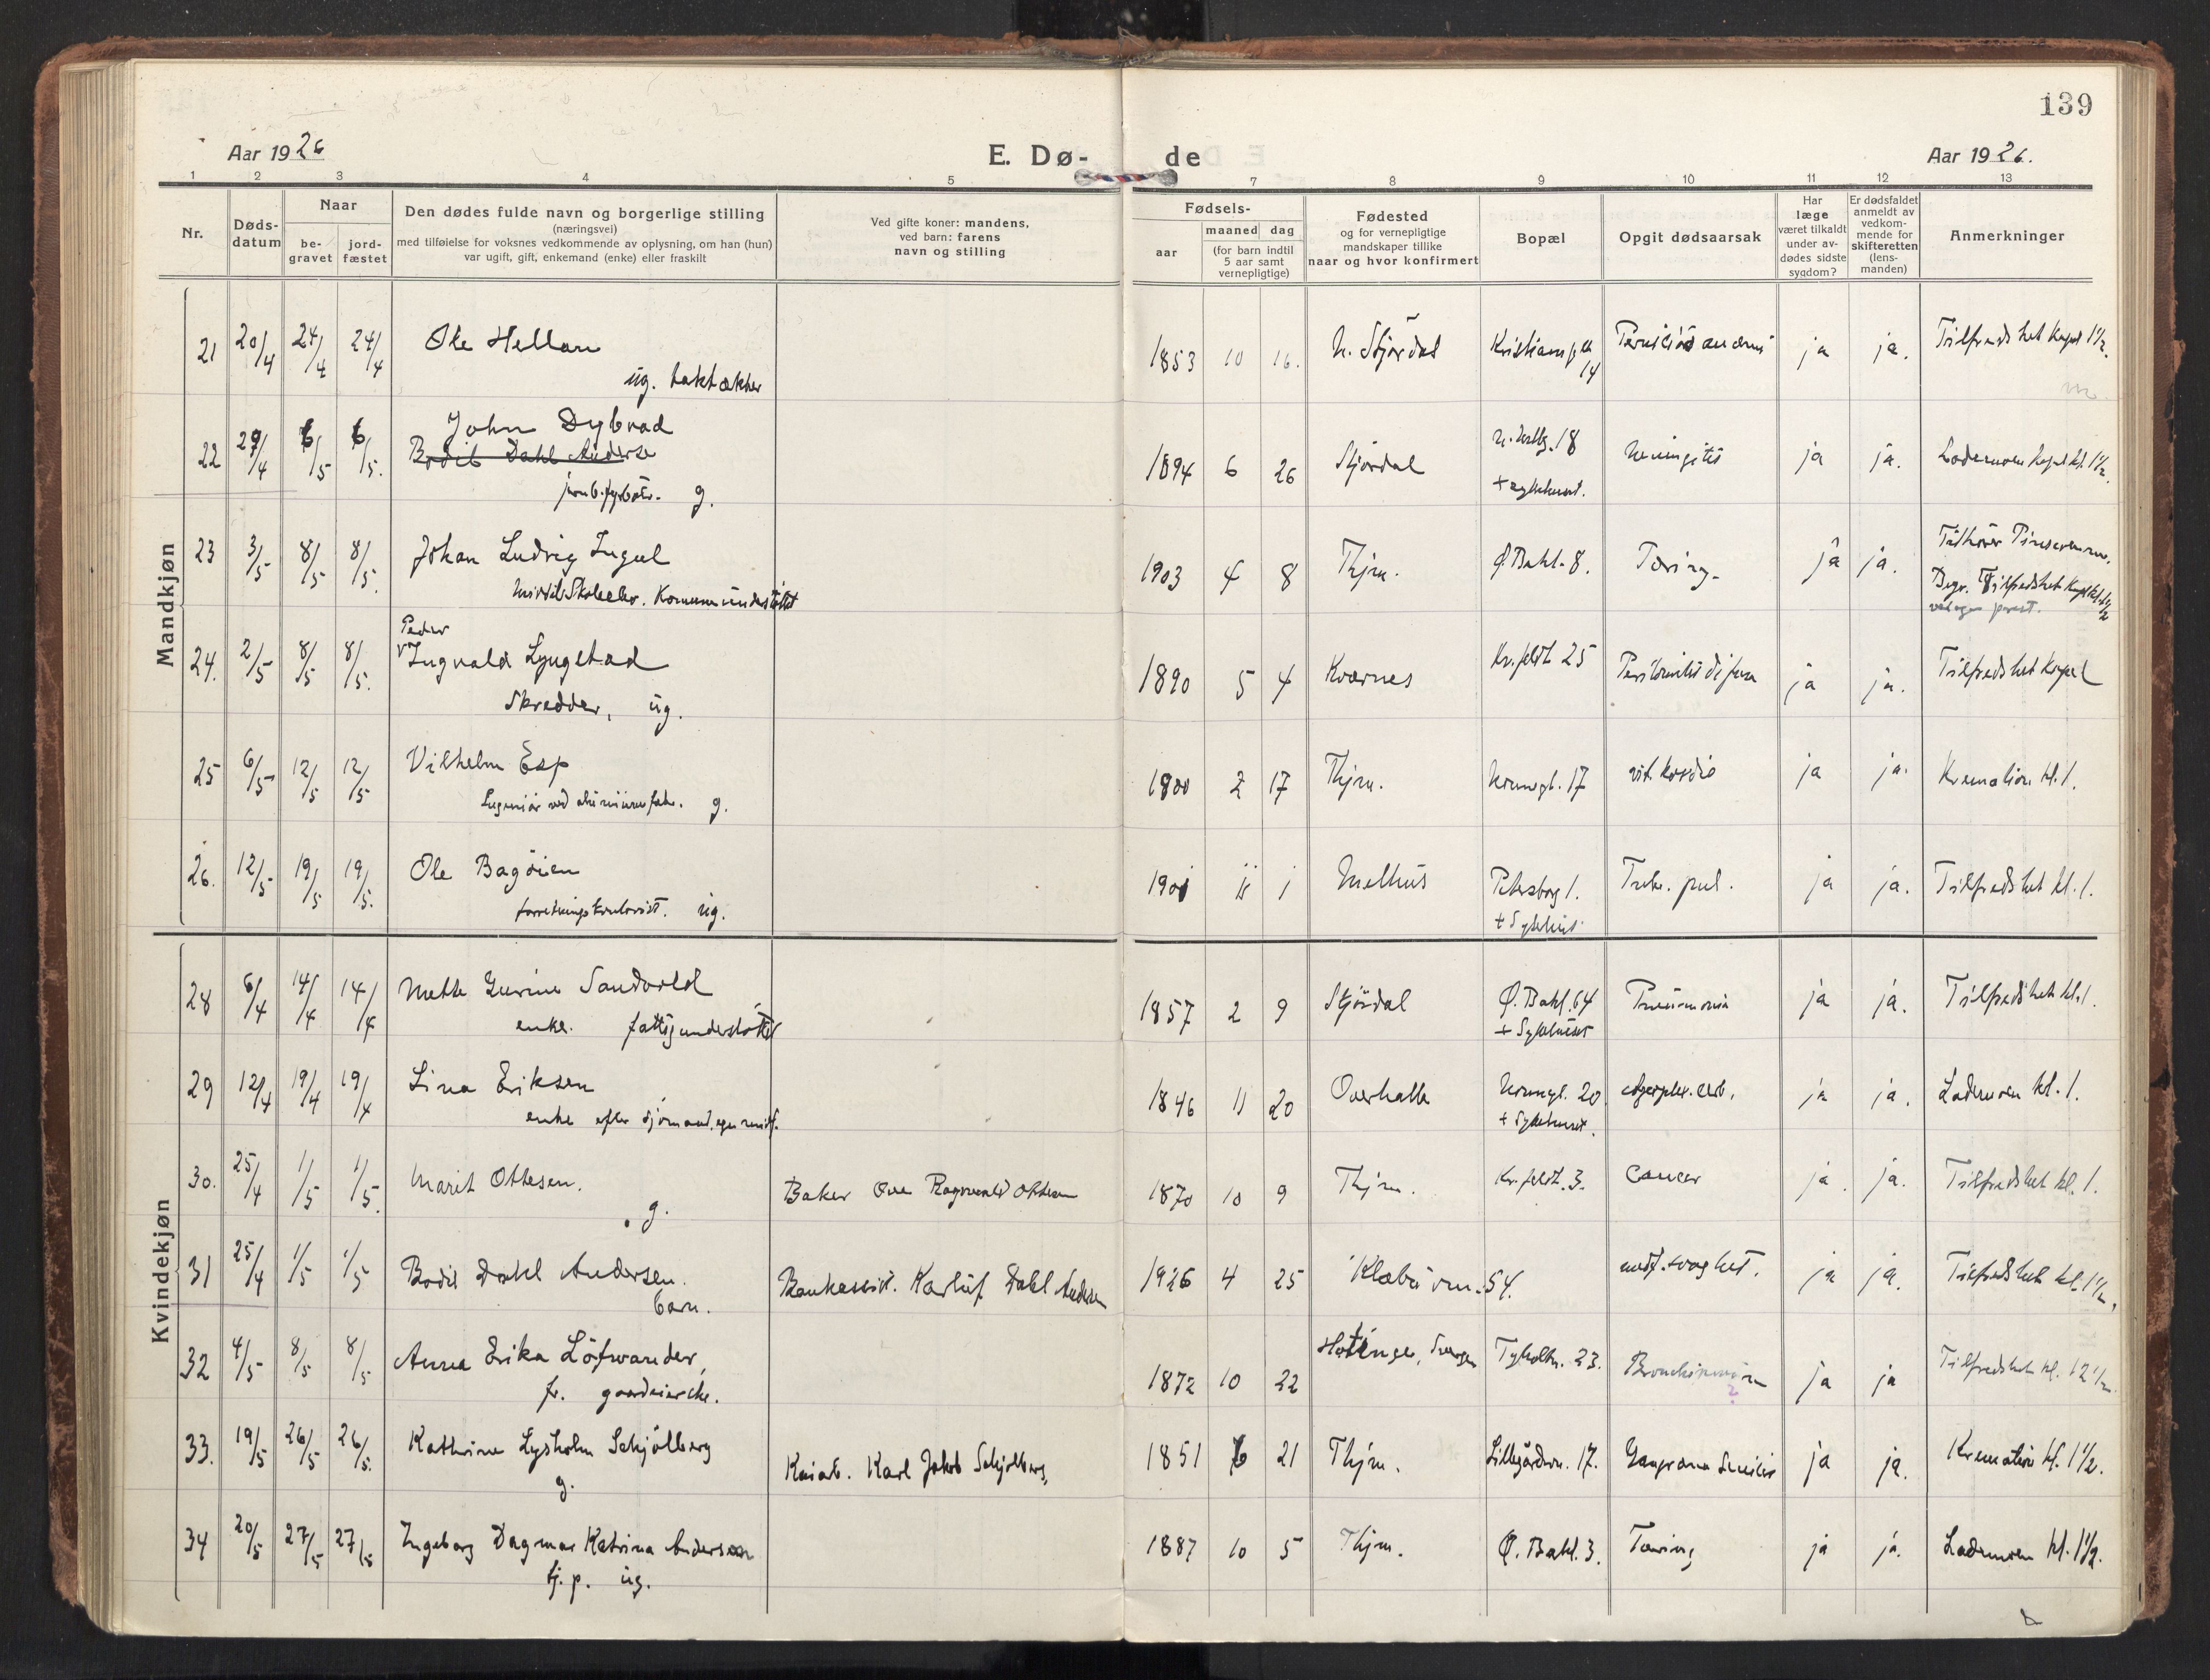 139
Aar 1926
E. Dø-
de
Aar 1926.
1 2 3 4 5 7 8 9 10 11 12 13
Nr.
Døds-
datum
Naar
be-
gravet
jord-
fæstet
Den dødes fulde navn og borgerlige stilling
(næringsvei)
med tilføielse for voksnes vedkommende av oplysning, om han (hun)
var ugift, gift, enkemand (enke) eller fraskilt
Ved gifte koner: mandens,
ved barn: farens
navn og stilling
Fødsels-
aar
maaned dag
(for barn indtil
5 aar samt
vernepligtige)
Fødested
og for vernepligtige
mandskaper tillike
naar og hvor konfirmert
Bopæl
Opgit dødsaarsak
Har
læge
været tilkaldt
under av-
dødes sidste
sygdom?
Er dødsfaldet
anmeldt av
vedkom-
mende for
skifteretten
(lens-
manden)
Anmerkninger
Mandkjøn
21 20/4 24/4 24/4 Ole Hellan 1853 10 16. N. Stjørdal 14 ja ja. Tilfredshet kapel 1½.
ug. taktækker
22 29/4 6/5 6/5. John Dybvad 1894 6 26 Stjørdal 18 Meningitis ja ja. Lademoen kapel kl. 1½.
Bodil Dahl Anderse
g. + sykehuset.
23 3/5 8/5 8/5. Johan Ludvig 1903 4 8 Thjm. Ø. Bakl. 8. Tæring. ja ja. Tilhører Pinsevennene.
Middelskoleelev. Kommuneunderstøttet Begr. Tilfredshet kapel kl. 1½
Peder
24. 2/5 8/5 8/5. Ingvald Lyngstad 1890 5 4 Kværnes Kr.feldt 25 ja ja. Tilfredshet kapel
Skredder, ug.
25 6/5 12/5 12/5 Vilhelm Esp 1900 2 17 Thjm. 17 vit. kordis ja ja. Kremation kl. 1.
Ingeniør ved g.
26. 12/5 19/5 19/5. Ole Bagøien 1901 11 1 Melhus Petersborg 1. Tub. pul. ja ja. Tilfredshet kl. 1.
ug. + Sykehus.
Kvindekjøn
28 6/4 14/4 14/4 Mette Gurine Sandvold 1857 2 9 Stjørdal Ø. Bakl. 64 Pneumonia ja ja. Tilfredshet kl. 1.
enke. fattigunderstøttet + Sykehuset
29 12/4 19/4 19/4 Lina Eriksen 1846 11 20 Overhalla 20 Apoplex. cereb. ja ja. Lademoen kl. 1.
enke efter sjømand, + Sykehuset.
30. 25/4 1/5 1/5. Marit Ottesen. Baker Ove Ragnvald Ottesen 1870 10 9 Thjm. Kr. feldt. 3. Cancer ja. ja. Tilfredshet kl. 1.
g.
31 25/4 1/5 1/5 Bodil Dahl Andersen. Bankassist. Karluf Dahl Andersen 1926 4 25 Klæbuvn. 54. medf. svaghet. ja ja. Tilfredshet kl. 1½.
barn.
32 4/5 8/5 8/5 Anna Erika Löfwander, 1872 10 22 Tyholtv. 23. ja ja Tilfredshet kl. 12½.
fr. gaardeierske.
33. 19/5 26/5 26/5. Kathrine Lysholm Schjølberg Karl Jakob Schjølberg, 1851 6 21 Thjm. Lillegårdsv. 17. Gangræna Senilis ja ja. Kremation kl. 1½.
g.
34 20/5 27/5 27/5 Ingeborg Dagmar Katrina Andersen 1887 10 5 Thjm. Ø. Bakl. 3. Tæring ja ja. Lademoen kl. 1½.
tj. p. ug.